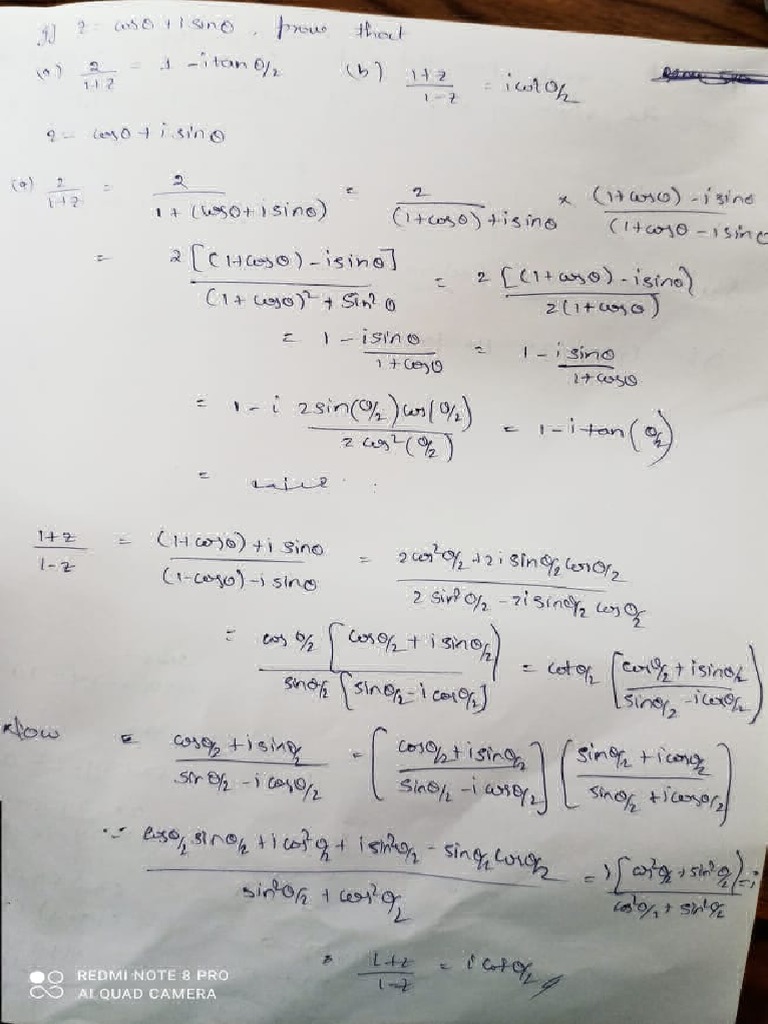 If z = cosθ + i sinθ, prove that
(a) 2/(1+z) = 1 - i tan θ/2 (b) (1+z)/(1-z) = i cot θ/2
z = cosθ + i sinθ
(a) 2/(1+z) = 2/(1 + (cosθ + i sinθ)) = 2/((1+cosθ) + i sinθ) × ((1+cosθ) - i sinθ)/((1+cosθ - i sinθ
= 2[(1+cosθ) - i sinθ]/((1+cosθ)² + sin²θ) = 2[(1+cosθ) - i sinθ]/(2(1+cosθ))
= 1 - i sinθ/(1+cosθ) = 1 - i sinθ/(1+cosθ)
= 1 - i 2 sin(θ/2) cos(θ/2)/(2 cos²(θ/2)) = 1 - i tan(θ/2)
=
(1+z)/(1-z) = ((1+cosθ) + i sinθ)/((1-cosθ) - i sinθ) = (2cos²θ/2 + 2i sinθ/2 cosθ/2)/(2 sin²θ/2 - 2i sinθ/2 cosθ/2)
= cos θ/2 [cosθ/2 + i sinθ/2]/(sinθ/2 [sinθ/2 - i cosθ/2]) = cot θ/2 [(cosθ/2 + i sinθ/2)/(sinθ/2 - i cosθ/2)]
Now = (cosθ/2 + i sinθ/2)/(sinθ/2 - i cosθ/2) = [(cosθ/2 + i sinθ/2)/(sinθ/2 - i cosθ/2)] [(sinθ/2 + i cosθ/2)/(sinθ/2 + i cosθ/2)]
= (cosθ/2 sinθ/2 + i cos²θ/2 + i sin²θ/2 - sinθ/2 cosθ/2)/(sin²θ/2 + cos²θ/2) = i[cos²θ/2 + sin²θ/2]/(cos²θ/2 + sin²θ/2) = i
∴ (1+z)/(1-z) = i cot θ/2
REDMI NOTE 8 PRO
AI QUAD CAMERA